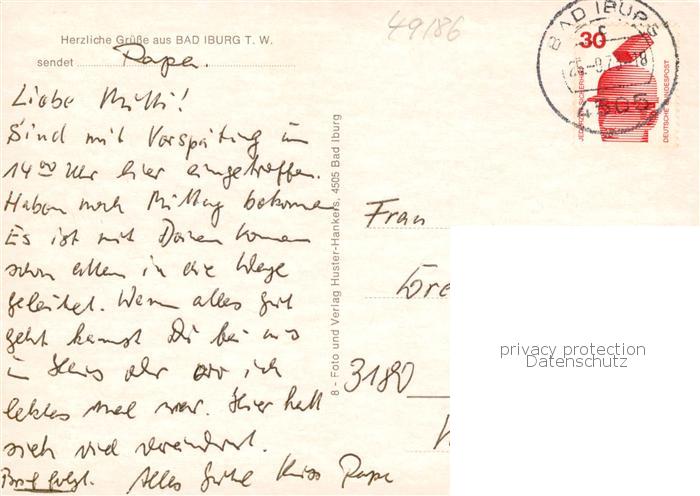 49/86
Herzliche Grüße aus BAD IBURG T. W.
sendet Papa.
Liebe Mutti!
Sind mit Verspätung um
14 00 Uhr hier eingetroffen.
Haben noch Mittag bekommen
Es ist mit Deinem Kommen
schon alles in die Wege
geleitet. Wenn alles gut
geht kannst Du bei uns
im Haus oder wo ich
letztes Mal war. Hier hat
sich viel verändert.
Brief folgt. Alles Gute Kiss Papa
8 - Foto und Verlag Huster-Hankers, 4505 Bad Iburg
BAD IBURG
30
DEUTSCHE BUNDESPOST
Frau
3180
privacy protection
Datenschutz